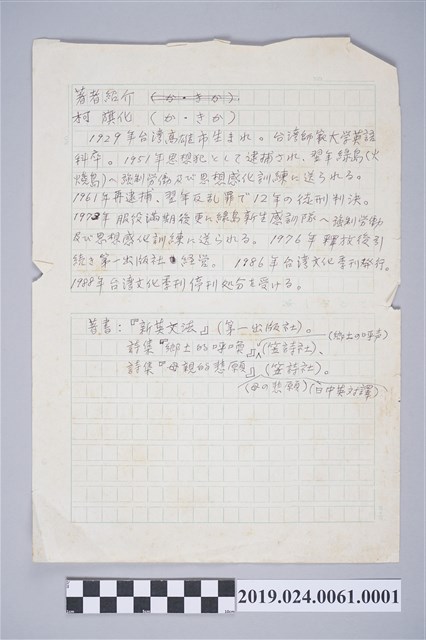 著者紹介 (か・きか)
柯 旗化 (か・きか)
1929年台湾高雄市生まれ。台湾師範大学英語
科卒。1951年思想犯として逮捕され、翌年緑島(火
焼島)へ強制労働及び思想感化訓練に送られる。
1961年再逮捕、翌年反乱罪で12年の徒刑判決。
1973年服役満期後更に緑島新生感訓隊へ強制労働
及び思想感化訓練に送られる。1976年釈放後引
続き第一出版社 経営。1986年台湾文化季刊発行。
1988年台湾文化季刊停刊処分を受ける。
著書:『新英文法』(第一出版社)。
(郷土の呼声)
詩集『郷土的呼喚』(笠詩社)、
詩集『母親的悲願』(笠詩社)。
(母の悲願)(日中英対訳)
2019.024.0061.0001